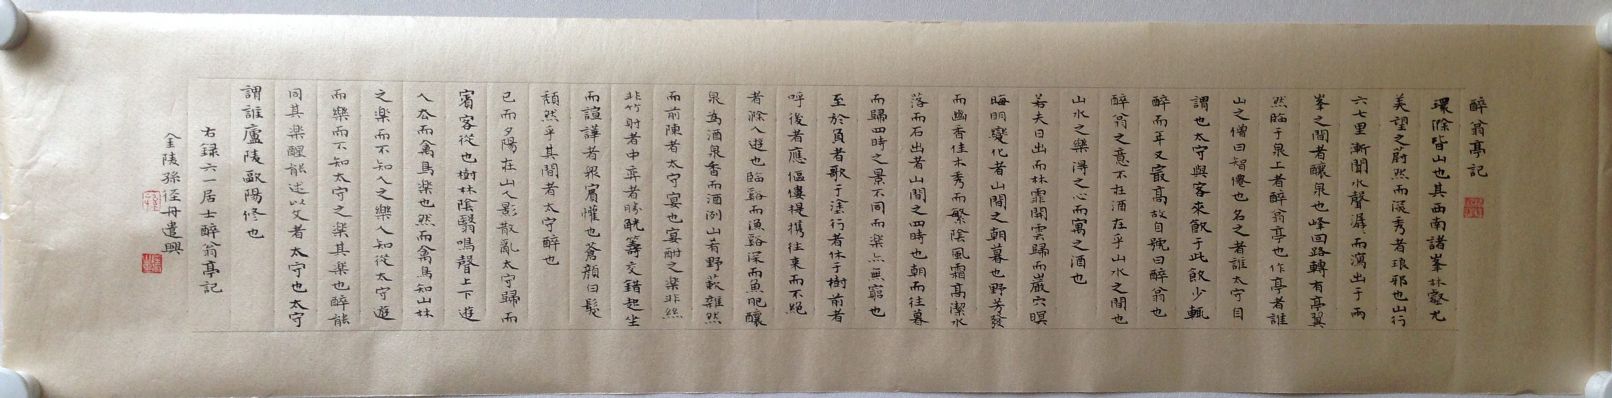 醉翁亭記
環滁皆山也其西南諸峯林壑尤
美望之蔚然而深秀者琅邪也山行
六七里漸聞水聲潺而瀉出于兩
峯之間者釀泉也峰回路轉有亭翼
然臨于泉上者醉翁亭也作亭者誰
山之僧曰智僊也名之者誰太守自
謂也太守與客來飲于此飲少輒
醉而年又最高故自號曰醉翁也
醉翁之意不在酒在乎山水之間也
山水之樂得之心而寓之酒也
若夫日出而林霏開雲歸而巖穴暝
晦明變化者山間之朝暮也野芳發
而幽香佳木秀而繁陰風霜高潔水
落而石出者山間之四時也朝而往暮
而歸四時之景不同而樂亦無窮也
至於負者歌于塗行者休于樹前者
呼後者應傴僂提攜往來而不絕
者滁人遊也臨谿而漁谿深而魚肥釀
泉為酒泉香而酒洌山肴野蔌雜然
而前陳者太守宴也宴酣之樂非絲
非竹射者中弈者勝觥籌交錯起坐
而諠譁者衆賓懽也蒼顏白髮
頹然乎其間者太守醉也
已而夕陽在山人影散亂太守歸而
賓客從也樹林陰翳鳴聲上下遊
人去而禽鳥樂也然而禽鳥知山林
之樂而不知人之樂人知從太守遊
而樂而不知太守之樂其樂也醉能
同其樂醒能述以文者太守也太守
謂誰廬陵歐陽修也
右録六一居士醉翁亭記
金陵孫徑舟遣興